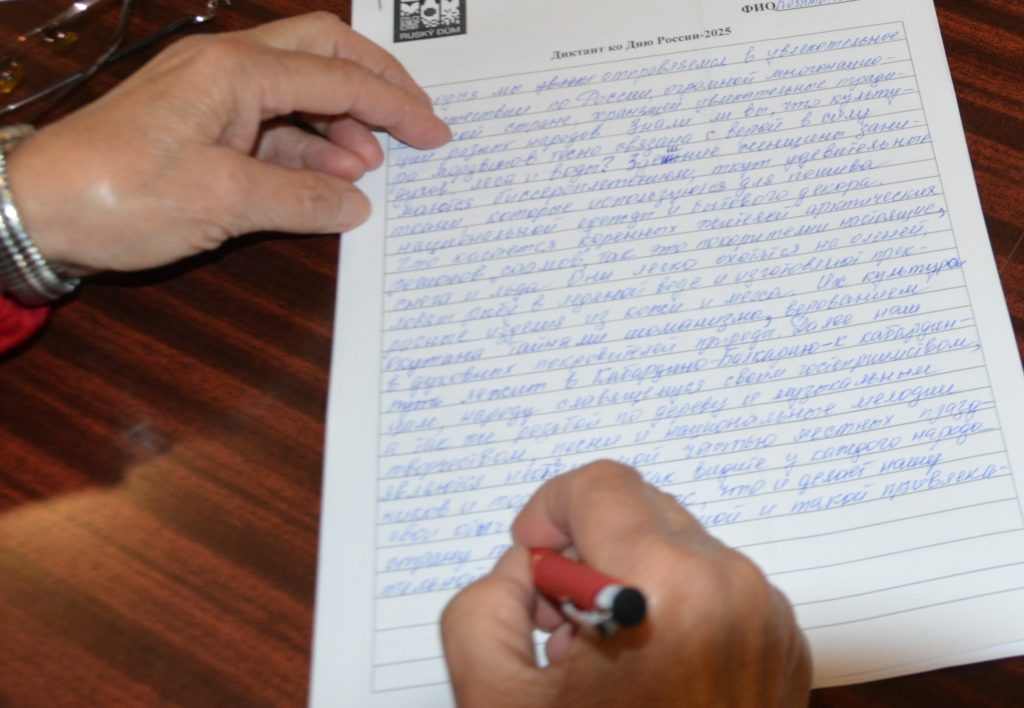 RUSKÝ DŮM
ФИО
Диктант ко Дню России-2025
мы увлеие отправляемся в увлекательное
по России, огромной многонацио-
стране, хранящей увлекательные тради-
ции разных народов. Знали ли вы, что культу-
ра мордвинов тесно связана с верой в силу
духов леса и воды? женщины зани-
маются бисероплетением, ткут удивительные
ткани, которые используются для пошива
национальной одежды и бытового декора.
Что касается коренных жителей арктических
регионов, саамов, так это покорители настоящие,
снега и льда. Они легко охотятся на оленей,
ловят рыбу в ледяной воде и изготовляют прек-
расные изделия из кожи и меха. Их культура
окутана тайнами шоманизма, верованием
в духовных покровителей природы. Далее наш
путь лежит в Кабардино-Балкарию-к кабардин-
цам, народу славящемуся своим гостеприимством,
а так же резьбой по дереву и музыкальным
творчеством, песни и национальные мелодии
являются частью местных празд-
ников и как видите у каждого народа
свои что и делает нашу
страну и такой привлека-
тельной